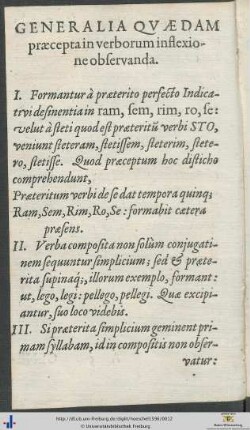 GENERALIA QVÆDAM
præcepta in verborum inflexio-
ne observanda.
I. Formantur à præterito perfecto Indica-
tivi desinentia in ram, sem, rim, ro, se:
velut à steti quod est præteritũ verbi STO,
veniunt steteram, stetissem, steterim, stete-
ro, stetisse. Quod præceptum hoc disticho
comprehendunt,
Præteritum verbi de se dat tempora quinq;
Ram, Sem, Rim, Ro, Se: formabit cætera
præsens.
II. Verba composita non solùm conjugati-
nem sequuntur simplicium; sed & præte-
rita supinaq;, illorum exemplo, formant:
ut, lego, legi: pellego, pellegi. Quæ excipi-
antur, suo loco videbis.
III. Si præterita simplicium geminent pri-
mam syllabam, id in compositis non obser-
vatur:
http://dl.ub.uni-freiburg.de/diglit/
© Universitätsbibliothek Freiburg